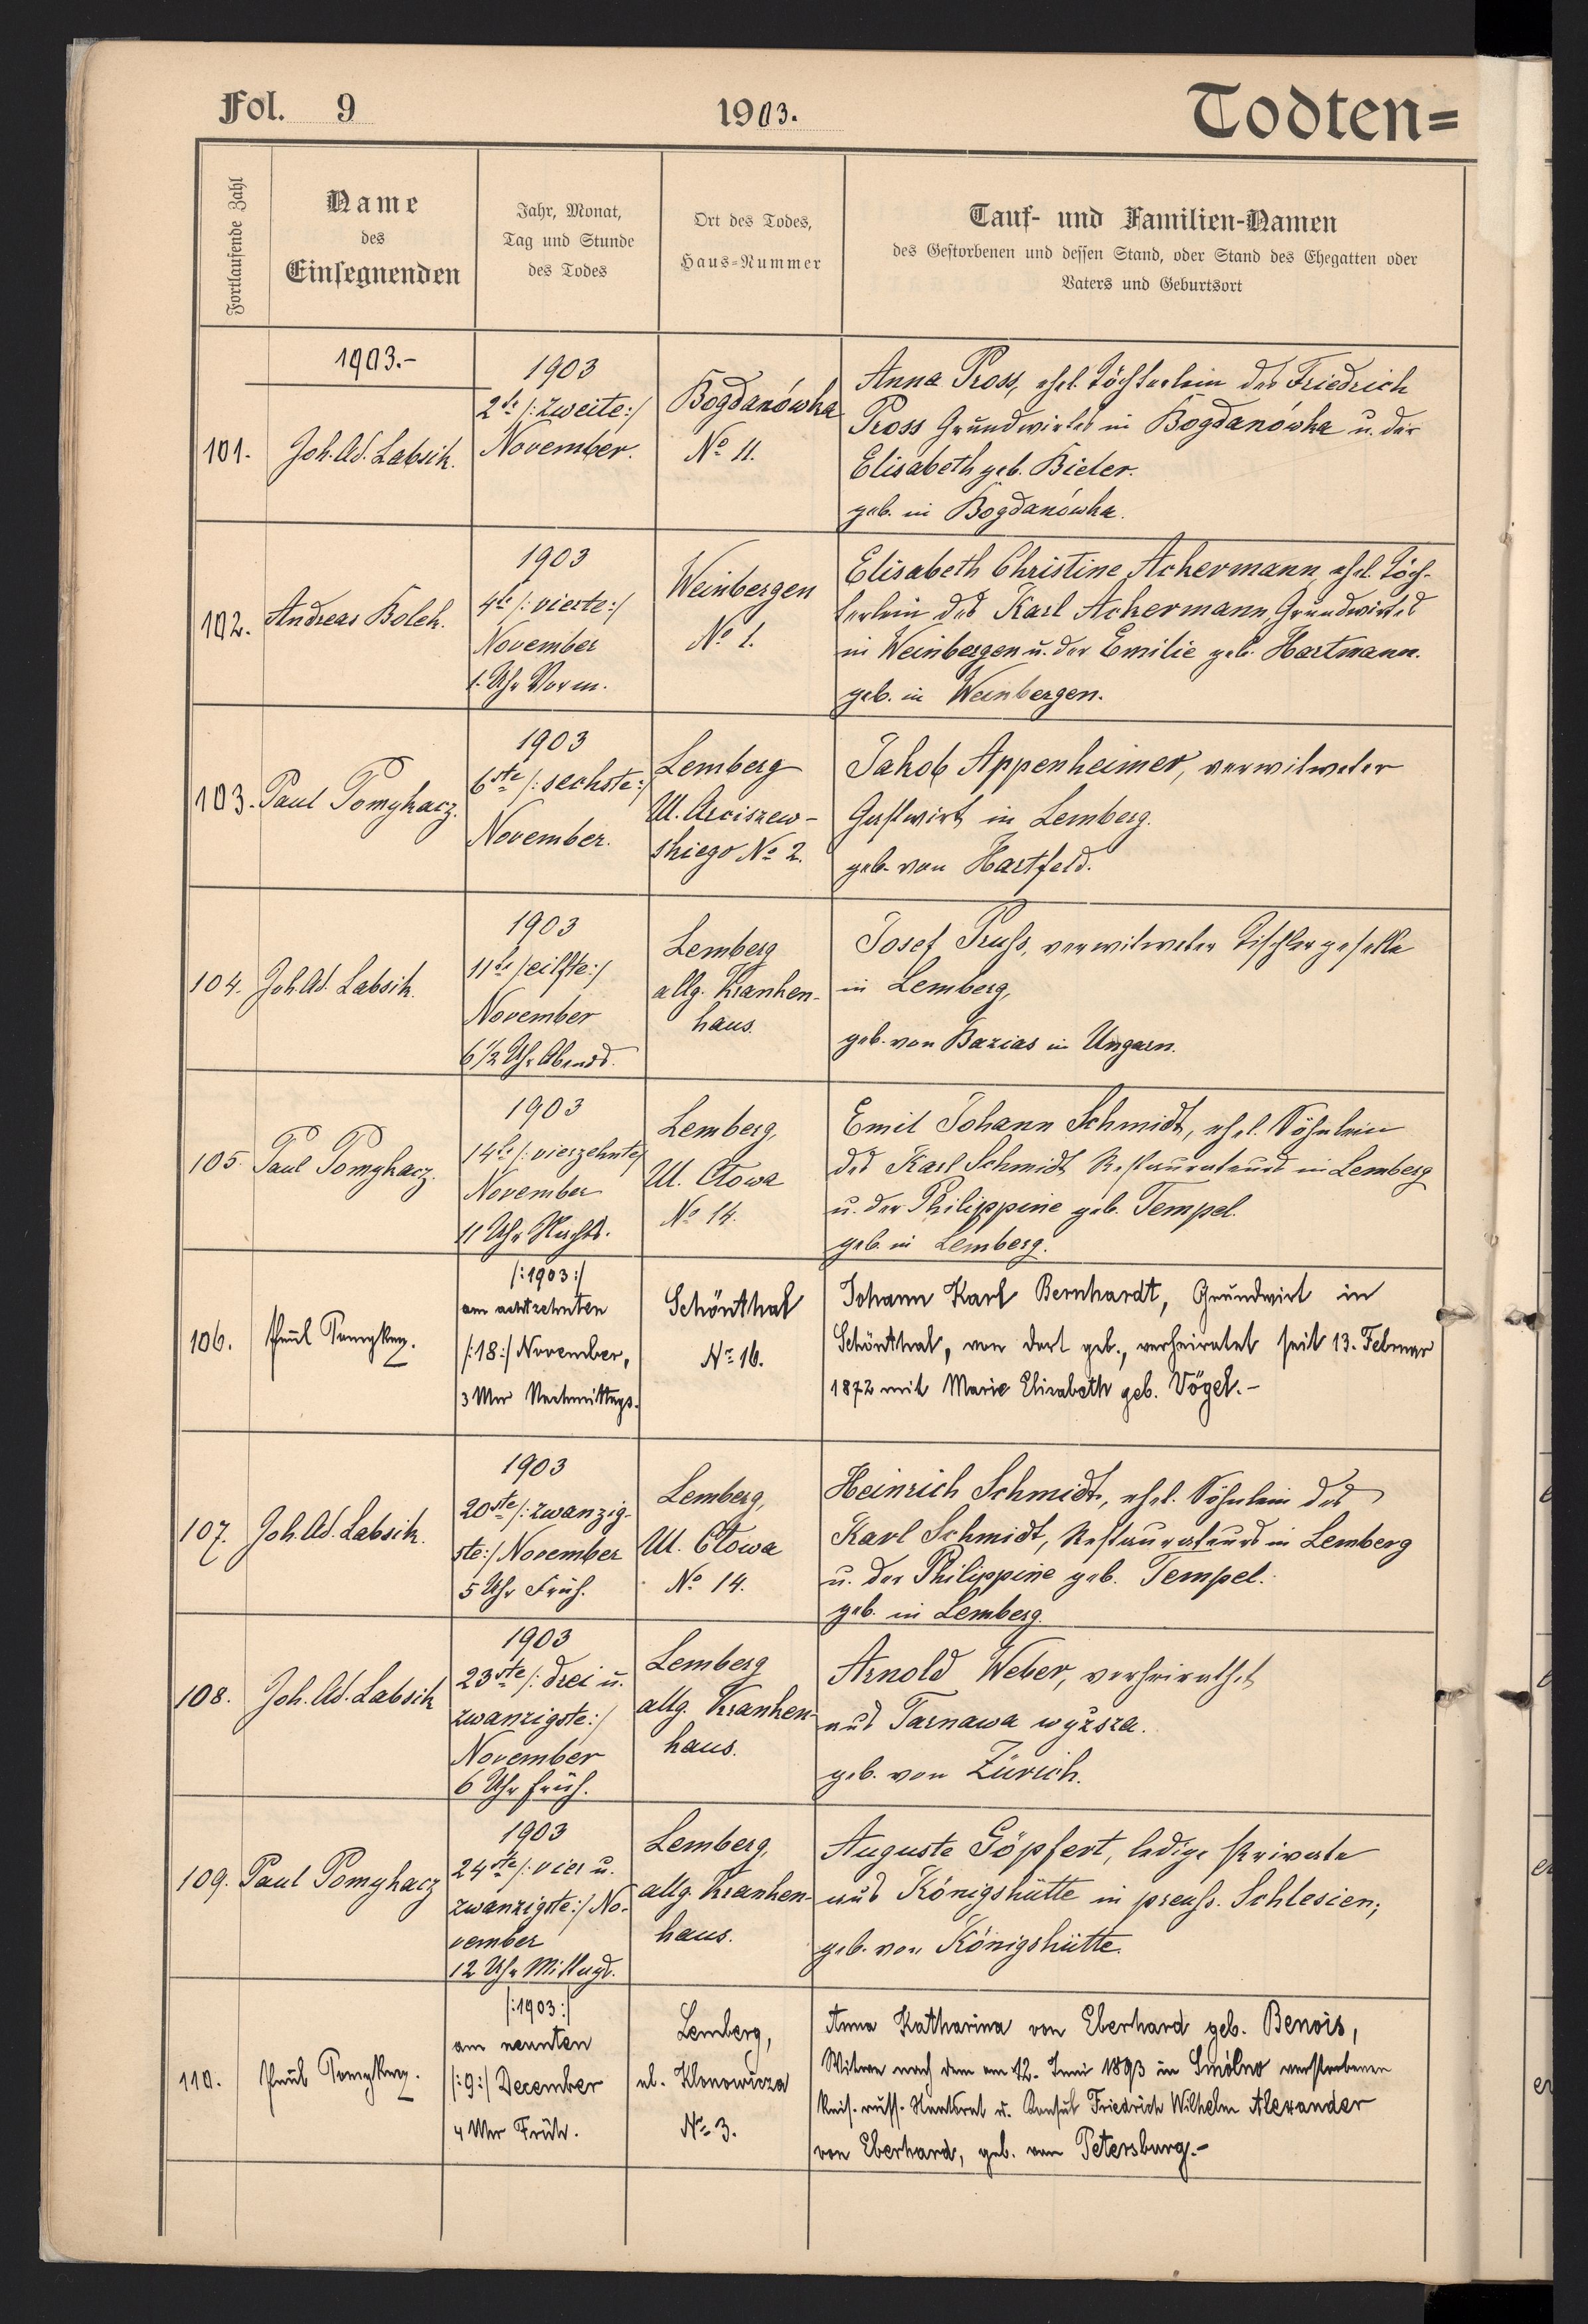 Fol. 9
1903.
Todten=
Fortlaufende Zahl
Name
des
Einsegnenden
Jahr, Monat,
Tag und Stunde
des Todes
Ort des Todes,
Haus-Nummer
Tauf- und Familien-Namen
des Gestorbenen und dessen Stand, oder Stand des Ehegatten oder
Vaters und Geburtsort
1903.-
101.
Joh. Ad. Labsik.
1903
2te /: zweite :/
November.
Bogdanówka
No 11.
Anna Pross, ehel. Töchterlein des Friedrich
Pross Grundwirtes in Bogdanówka u. der
Elisabeth geb. Bieler.
geb. in Bogdanówka.
102.
Andreas Bolek.
1903
4te /: vierte :/
November
1. Uhr Vorm.
Weinbergen
No 1.
Elisabeth Christine Ackermann, ehel. Töch-
terlein des Karl Ackermann, Grundwirtes
in Weinbergen u. der Emilie geb. Hartmann.
geb. in Weinbergen.
103.
Paul Pomykacz.
1903
6ste /: sechste :/
November.
Lemberg
Ul. Arciszew-
skiego No 2.
Jakob Appenheimer, verwitweter
Gastwirt in Lemberg.
geb. von Hartfeld.
104.
Joh. Ad. Labsik.
1903
11te /: eilfte :/
November
6 1/2 Uhr Abends.
Lemberg
allg. Kranken-
haus.
Josef Pruss, verwitweter Tischlergeselle
in Lemberg,
geb. von Bazias in Ungarn.
105.
Paul Pomykacz.
1903
14te /: vierzehnte /
November
11 Uhr Nachts.
Lemberg,
Ul. Cłowa
No 14.
Emil Johann Schmidt, ehel. Söhnlein
des Karl Schmidt Restaurateurs in Lemberg
u. der Philippine geb. Tempel.
geb. in Lemberg.
106.
Paul Pomykacz.
/: 1903 :/
am achtzehnten
/: 18 :/ November,
3 Uhr Nachmittags.
Schönthal
No 16.
Johann Karl Bernhardt, Grundwirt in
Schönthal, von dort geb., verheiratet seit 13. Februar
1872 mit Marie Elisabeth geb. Vögel.-
107.
Joh. Ad. Labsik.
1903
20ste /: zwanzig-
ste :/ November
5 Uhr Früh.
Lemberg,
Ul. Cłowa
No 14.
Heinrich Schmidt, ehel. Söhnlein des
Karl Schmidt, Restaurateurs in Lemberg
u. der Philippine geb. Tempel.
geb. in Lemberg.
108.
Joh. Ad. Labsik
1903
23ste /: drei u.
zwanzigste :/
November
6 Uhr früh.
Lemberg
allg. Kranken-
haus.
Arnold Weber, verheirathet
aus Tarnawa wyższa.
geb. von Zürich.
109.
Paul Pomykacz
1903
24ste /: vier u.
zwanzigste :/ No-
vember
12 Uhr Mittags.
Lemberg,
allg. Kranken-
haus.
Auguste Göpfert, ledige Private
aus Königshütte in preuss. Schlesien;
geb. von Königshütte.
110.
Paul Pomykacz.
/: 1903 :/
am neunten
/: 9 :/ December
4 Uhr Früh.
Lemberg,
ul. Klonowicza
No 3.
Anna Katharina von Eberhard geb. Benois,
Witwe nach dem am 12. Juni 1893 in Smólno verstorbenen
kais. russ. Staatsrat u. Konsul Friedrich Wilhelm Alexander
von Eberhard, geb. von Petersburg.-